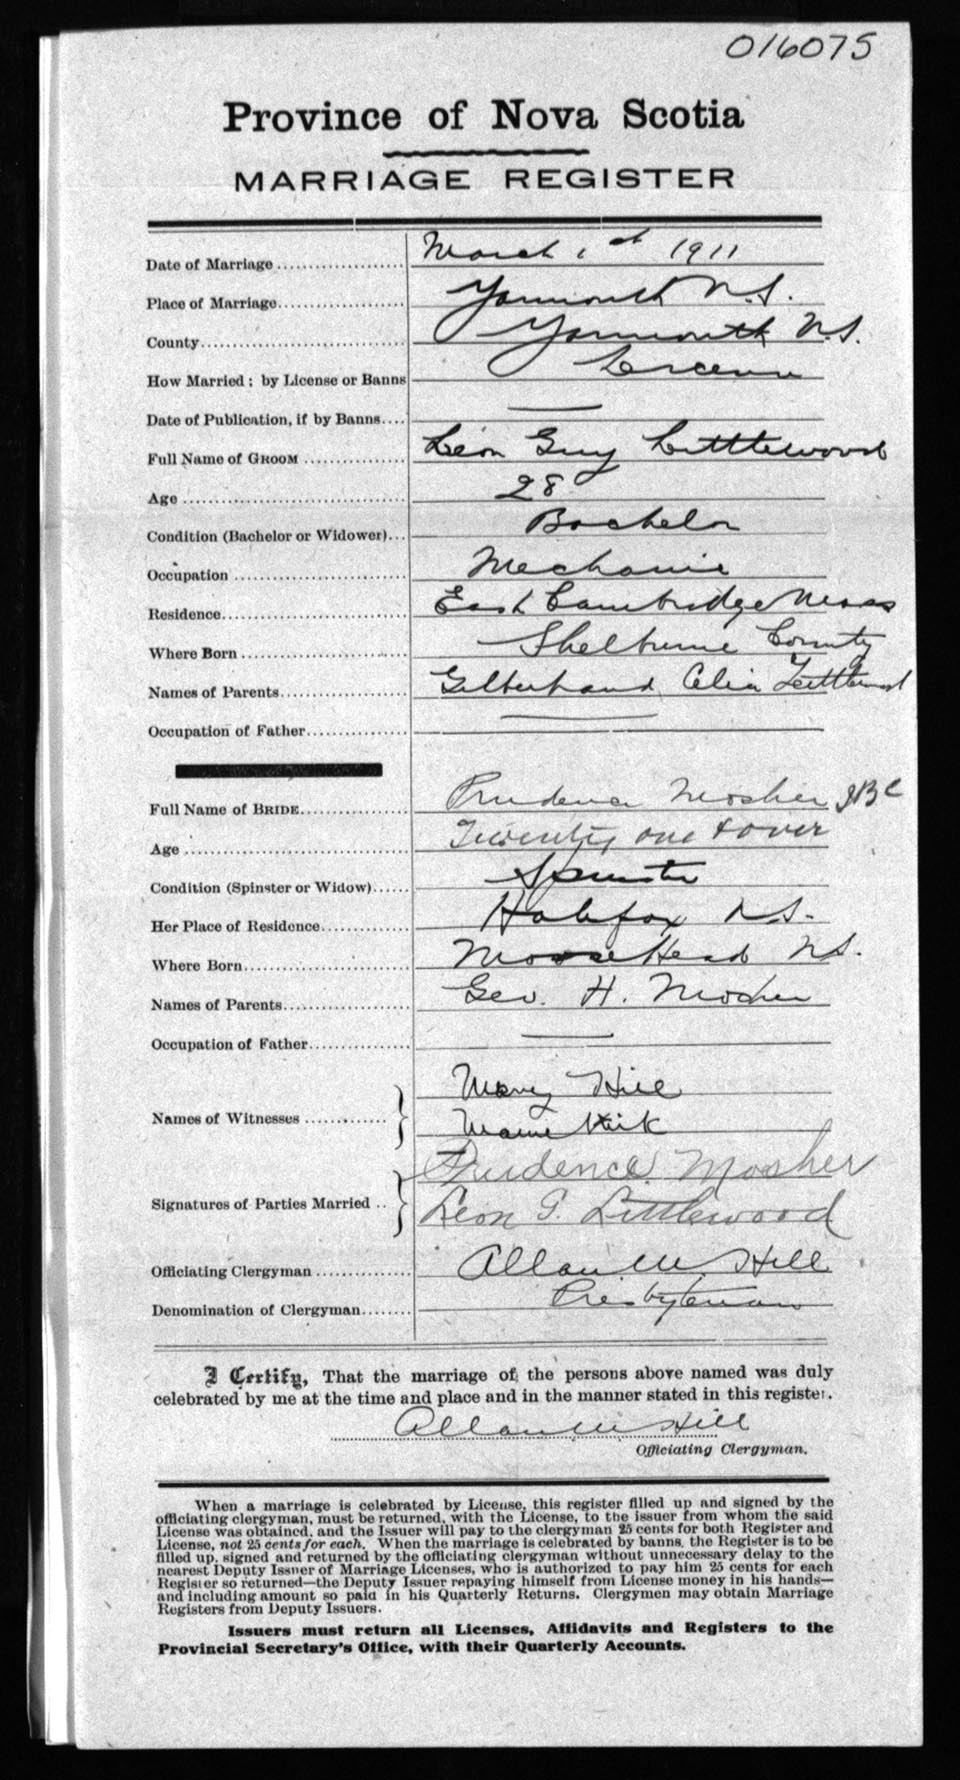 016075
Province of Nova Scotia
MARRIAGE REGISTER
Date of Marriage .................... March 1st 1911
Place of Marriage.................... Yarmouth N.S.
County.................... Yarmouth N.S.
How Married: by License or Banns License
Date of Publication, if by Banns.... —
Full Name of GROOM .................... Leon Guy Littlewood
Age .................... 28
Condition (Bachelor or Widower)... Bachelor
Occupation .................... Mechanic
Residence.................... East Cambridge Mass
Where Born .................... Shelburne County
Names of Parents.................... Gilbert and Celia Littlewood
Occupation of Father.................... —
Full Name of BRIDE.................... Prudence Mosher
Age .................... Twenty one & over
Condition (Spinster or Widow)...... Spinster
Her Place of Residence.................... Halifax N.S.
Where Born.................... Moose Head N.S.
Names of Parents.................... Geo. H. Mosher
Occupation of Father.................... —
Names of Witnesses ............. } Mary Hill
Mame Kirk
Signatures of Parties Married .. } Prudence Mosher
Leon G. Littlewood
Officiating Clergyman .................... Allan M. Hill
Denomination of Clergyman........ Presbyterian
I Certify, That the marriage of the persons above named was duly
celebrated by me at the time and place and in the manner stated in this register.
Allan M Hill
Officiating Clergyman.
When a marriage is celebrated by License, this register filled up and signed by the
officiating clergyman, must be returned, with the License, to the issuer from whom the said
License was obtained, and the Issuer will pay to the clergyman 25 cents for both Register and
License, not 25 cents for each. When the marriage is celebrated by banns, the Register is to be
filled up, signed and returned by the officiating clergyman without unnecessary delay to the
nearest Deputy Issuer of Marriage Licenses, who is authorized to pay him 25 cents for each
Register so returned—the Deputy Issuer repaying himself from License money in his hands—
and including amount so paid in his Quarterly Returns. Clergymen may obtain Marriage
Registers from Deputy Issuers.
Issuers must return all Licenses, Affidavits and Registers to the
Provincial Secretary's Office, with their Quarterly Accounts.